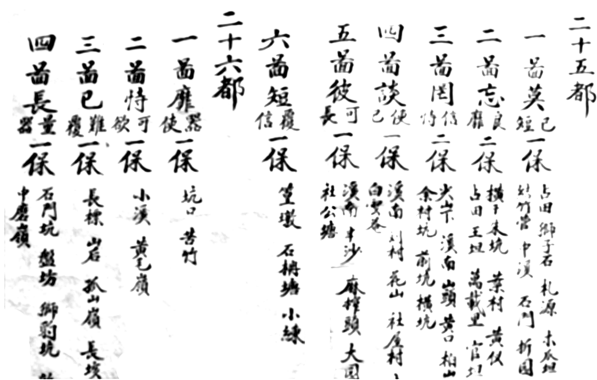 二十五都
一啚莫己短一保 占田 獅子石 札源 木瓜坦
竹管 中溪 石門 折園
二啚忘良靡二保 橫干 朱坑 葉村 黃仪
占田 王坦 萬載里 官坦
三啚罔信恃二保 溪南 山頭 黃口 柏山
余村坑 前坑 橫坑
四啚談使己一保 溪南 村 花山 社屋村
白雲
五啚彼可長一保 溪南 半沙 麻榨頭 大園
社公塘
六啚短覆信一保 篁墩 石塘 小練
二十六都
一啚靡器使一保 坑口 苦竹
二啚恃可欲一保 小溪 黃毛嶺
三啚已難覆一保 長棟 岩 孤山嶺 長埃
四啚長量器一保 石門坑 盤坊 獅坑
中磨嶺